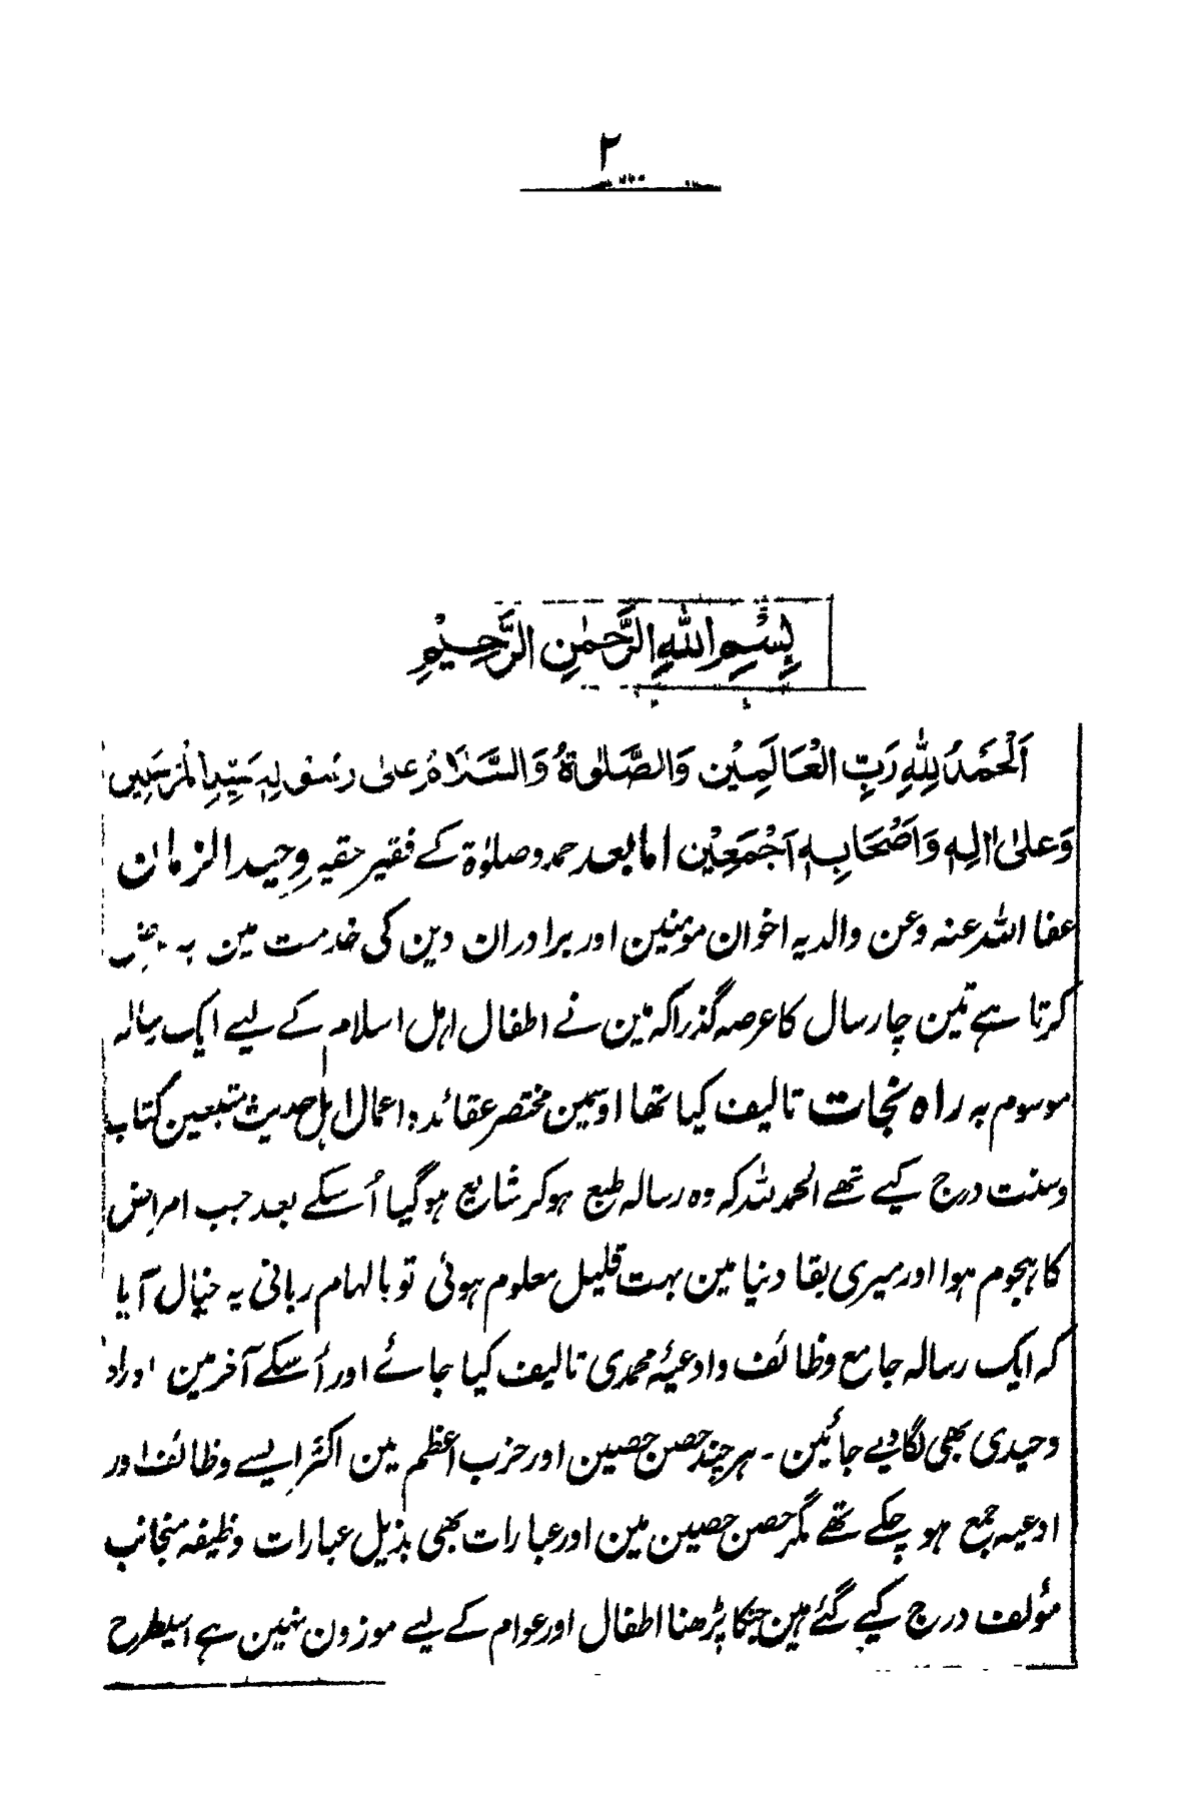 ۲
بِسْمِ اللهِ الرَّحْمٰنِ الرَّحِيْمِ
اَلْحَمْدُ لِلّٰهِ رَبِّ الْعَالَمِيْن وَالصَّلٰوةُ وَالسَّلَامُ عَلٰى رسُولِهٖ سَيِّدِ الْمُرْسَلِين
وَعَلىٰ اٰلِهٖ وَاَصْحَابِهٖ اَجْمَعِيْن امابعد حمد و صلوٰۃ کے فقیر حقیر وحید الزمان
عفا اللہ عنہ وعن والدیہ اخوان مؤمنین اور برادران دین کی خدمت مین یہ عرض
کرتا ہے تین چار سال کا عرصہ گذرا کہ مین نے اطفال اہل اسلام کے لیے ایک رسالہ
موسوم بہ راہ نجات تالیف کیا تھا اوسمین مختصر عقائد و اعمال اہل حدیث متبعین کتاب
وسنت درج کیے تھے الحمد للہ کہ وہ رسالہ طبع ہوکر شایع ہوگیا اُسکے بعد جب امراض
کا ہجوم ہوا اور میری بقا دنیا مین بہت قلیل معلوم ہوئی تو بالہام ربانی یہ خیال آیا
کہ ایک رسالہ جامع وظائف وادعیۂ محمدی تالیف کیا جائے اور اُسکے آخر مین اوراد
وحیدی بھی لگا دیے جائین ۔ ہر چند حصن حصین اور حزب اعظم مین اکثر ایسے وظائف اور
ادعیہ جمع ہو چکے تھے مگر حصن حصین مین اور عبارات بھی بذیل عبارات وظیفہ منجانب
مؤلف درج کیے گئے ہین جنکا پڑھنا اطفال اور عوام کے لیے موزون نہین ہے اسیطرح